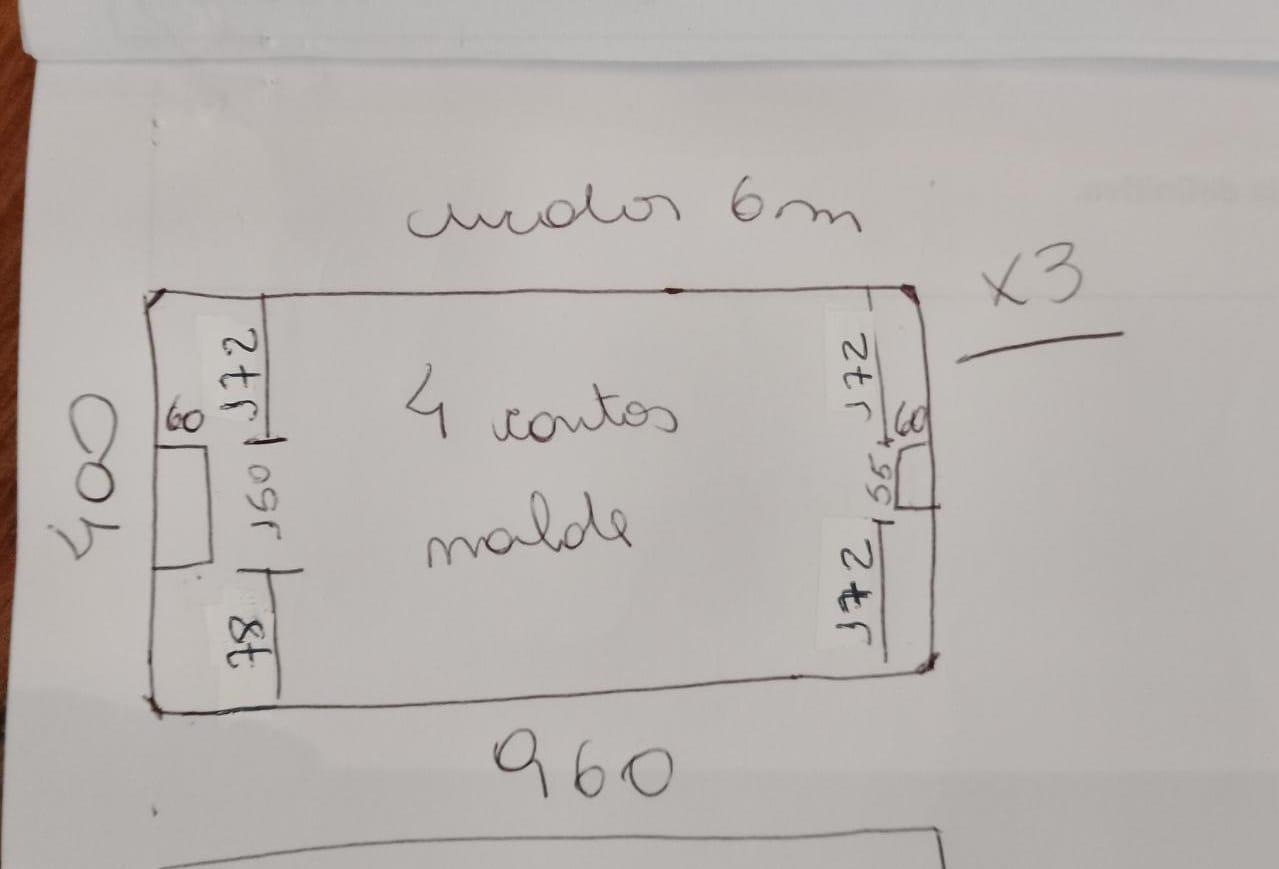 6m
x3
172
172
4 contos
60
60
400
150
55
malde
172
78
960